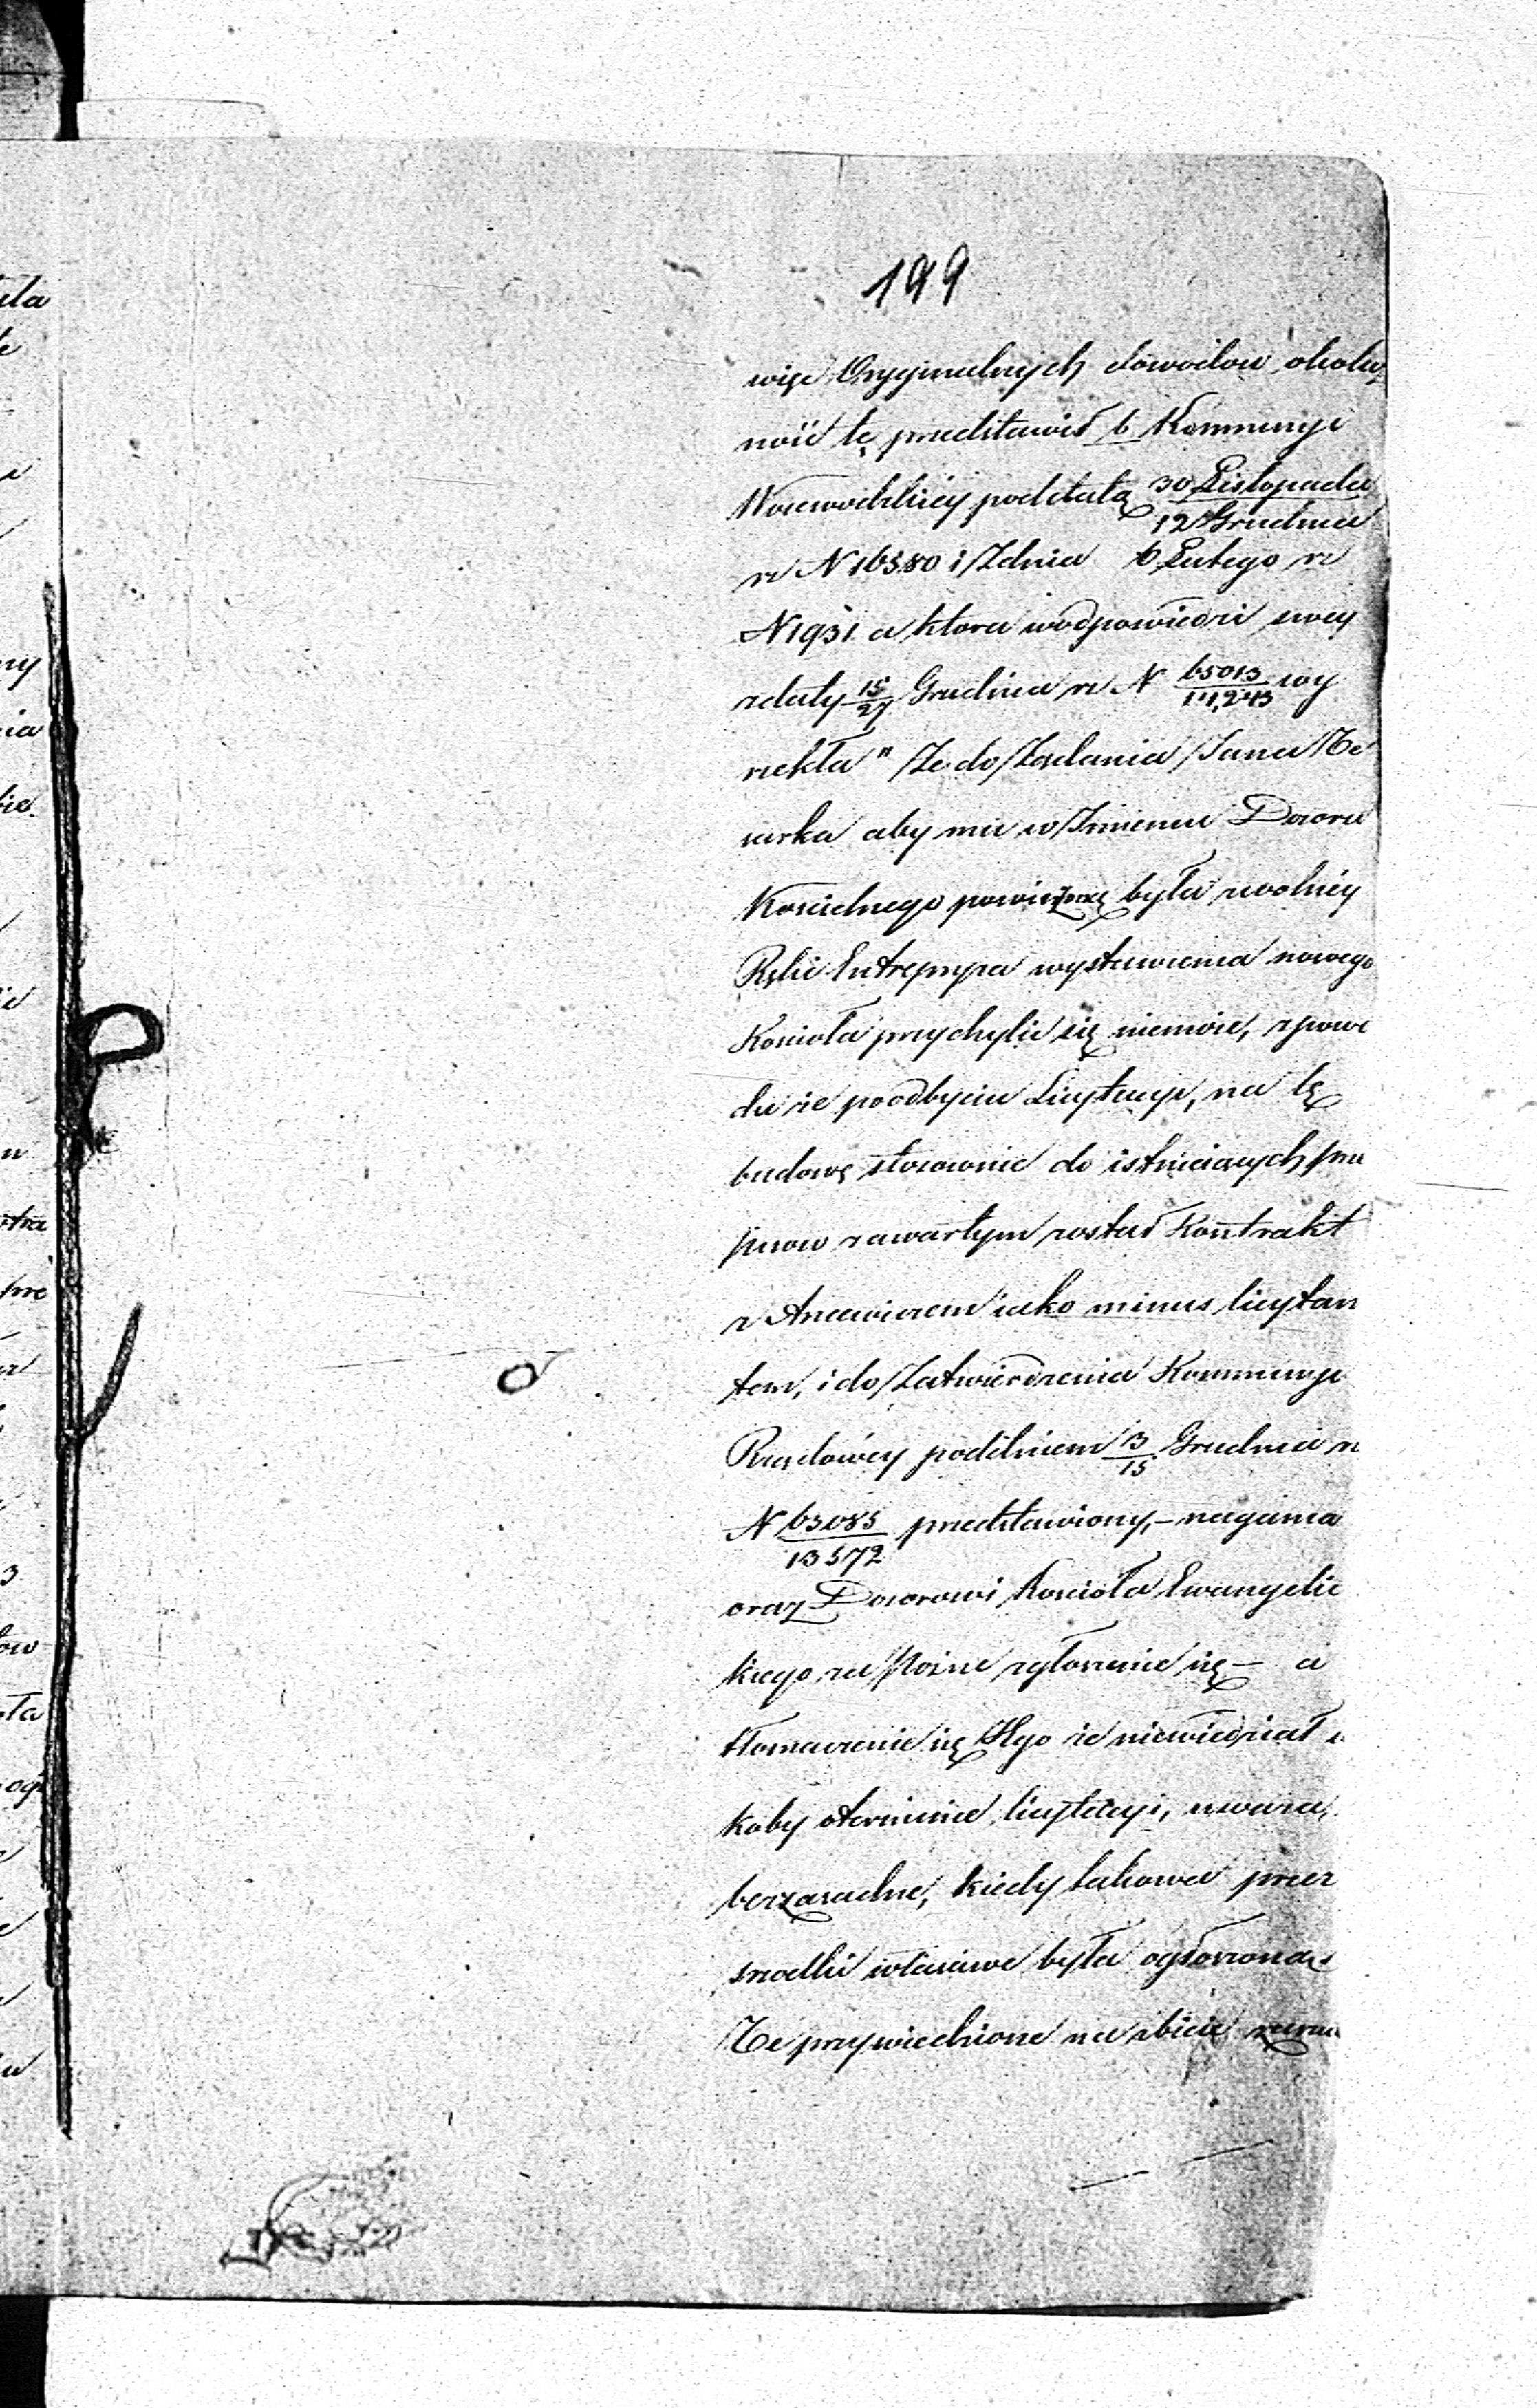 199
więc Oryginalnych dowodow okolicz
ność tę przedstawił b. Kommissyi
Woiewodzkiéy pod datą 30 Listopada/12 Grudnia
r z N 16580 i Zdnia 6 Lutego rz
N 1931 a ktora wodpowiedzi swey
zdaty 15/27 Grudnia rz N 65013/14,243 wy
rzekła " Ze do Ządania Jana
aby mu w Imieniu Dozoru
Koscielnego powierzoną była zwolnéy
Ręki Entrepryza wystawienia nowego
Koscioła przychylic się niemoze, zpowo
du ze poodbyciu Licytacyi, na tę
budowę stosownie do istnieiących prze
pisow zawartym został Kontrakt
z jako minus licytan
tem, i do Zatwierdzenia Kommissyi
Rządowéy poddniem 3/15 Grudnia rz
N 63085/13572 przedstawiony, – nagania
oraz Dozorowi Koscioła Ewangelic
kiego za Pózne zgłoszenie się – a
tłomaczenie się Jego ze niewiedział ia
koby oterminie licytacyi, uwaza,
bezzasadne, kiedy takowa przez
srzodki własciwe była ogłoszona,
Te przywiedzione na zbicie